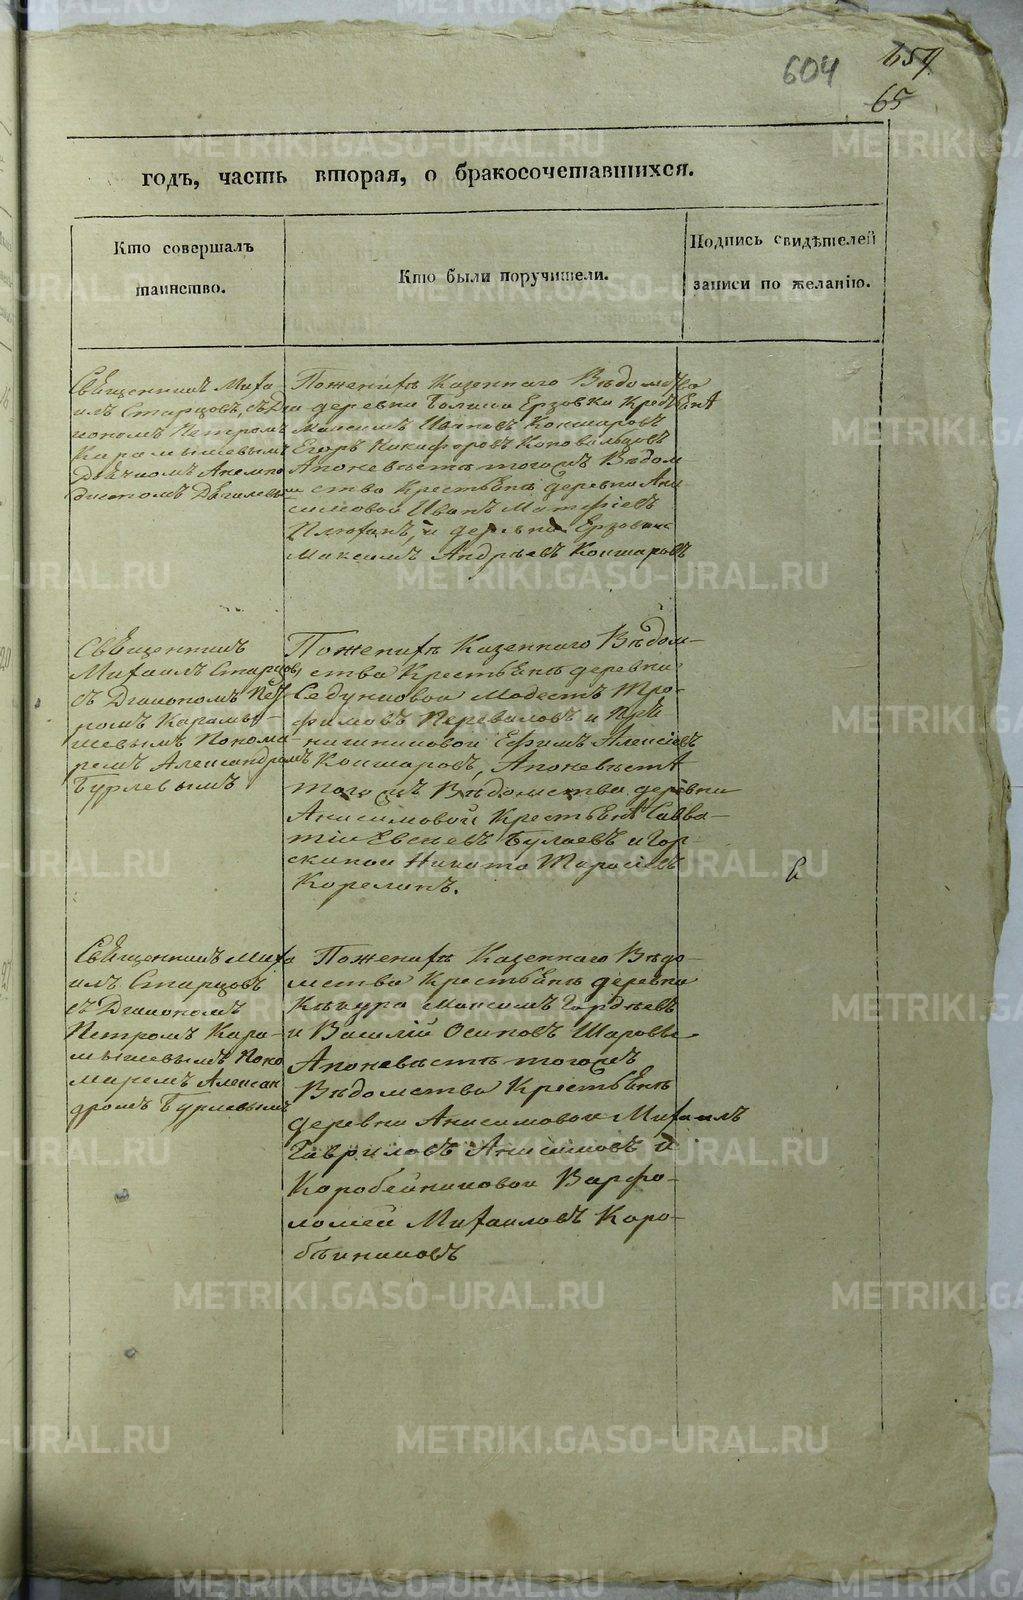 604
657
65
годъ, часть вторая, о бракосочетавшихся.
Кто совершалъ
таинство.
Кто были поручители.
Подпись свидѣтелей
записи по желанію.
Священникъ Миха
илъ Старцовъ, съ Діа
кономъ Петромъ
Карамышевымъ
Дьячкомъ
Дягилевымъ
По женихѣ Казеннаго Вѣдомства
деревни Ерзовки
Максимъ Ивановъ Кокшаровъ
Егоръ Никифоровъ Коновальцовъ
А по невѣстѣ того жъ Вѣдом
ства Крестьяне деревни Ани
симовой Иванъ
и деревни Ерзовки
Максимъ Андреевъ Кокшаровъ
Священникъ
Михаилъ Старцовъ
съ Діакономъ Пет
ромъ Карамы-
шевымъ Понома
ремъ Александромъ
Бурлевымъ
По женихѣ Казеннаго Вѣдом-
ства Крестьяне деревни
Седунковой Модестъ Тро-
фимовъ Переваловъ и
Ефимъ Алексѣевъ
Кокшаровъ, А по невѣстѣ
того жъ Вѣдомства деревни
Анисимовой Крестьяне Савва-
тій Булаевъ и Гор
скиной Никита Тарасовъ
Карелинъ.
Священникъ Миха
илъ Старцовъ
съ Діакономъ
Петромъ Кара-
мышевымъ Поно
маремъ Алексан
дромъ Бурлевымъ
По женихѣ Казеннаго Вѣдо-
мства Крестьяне деревни
Кекура Максимъ Гордѣевъ
и Василій Осиповъ Шаровы
А по невѣстѣ того жъ
Вѣдомства Крестьяне
деревни Анисимовой Михаилъ
Гавриловъ Анисимовъ и
Коробейниковой Варфо-
ломей Михаиловъ Коро-
бѣиниковъ
METRIKI.GASO-URAL.RU